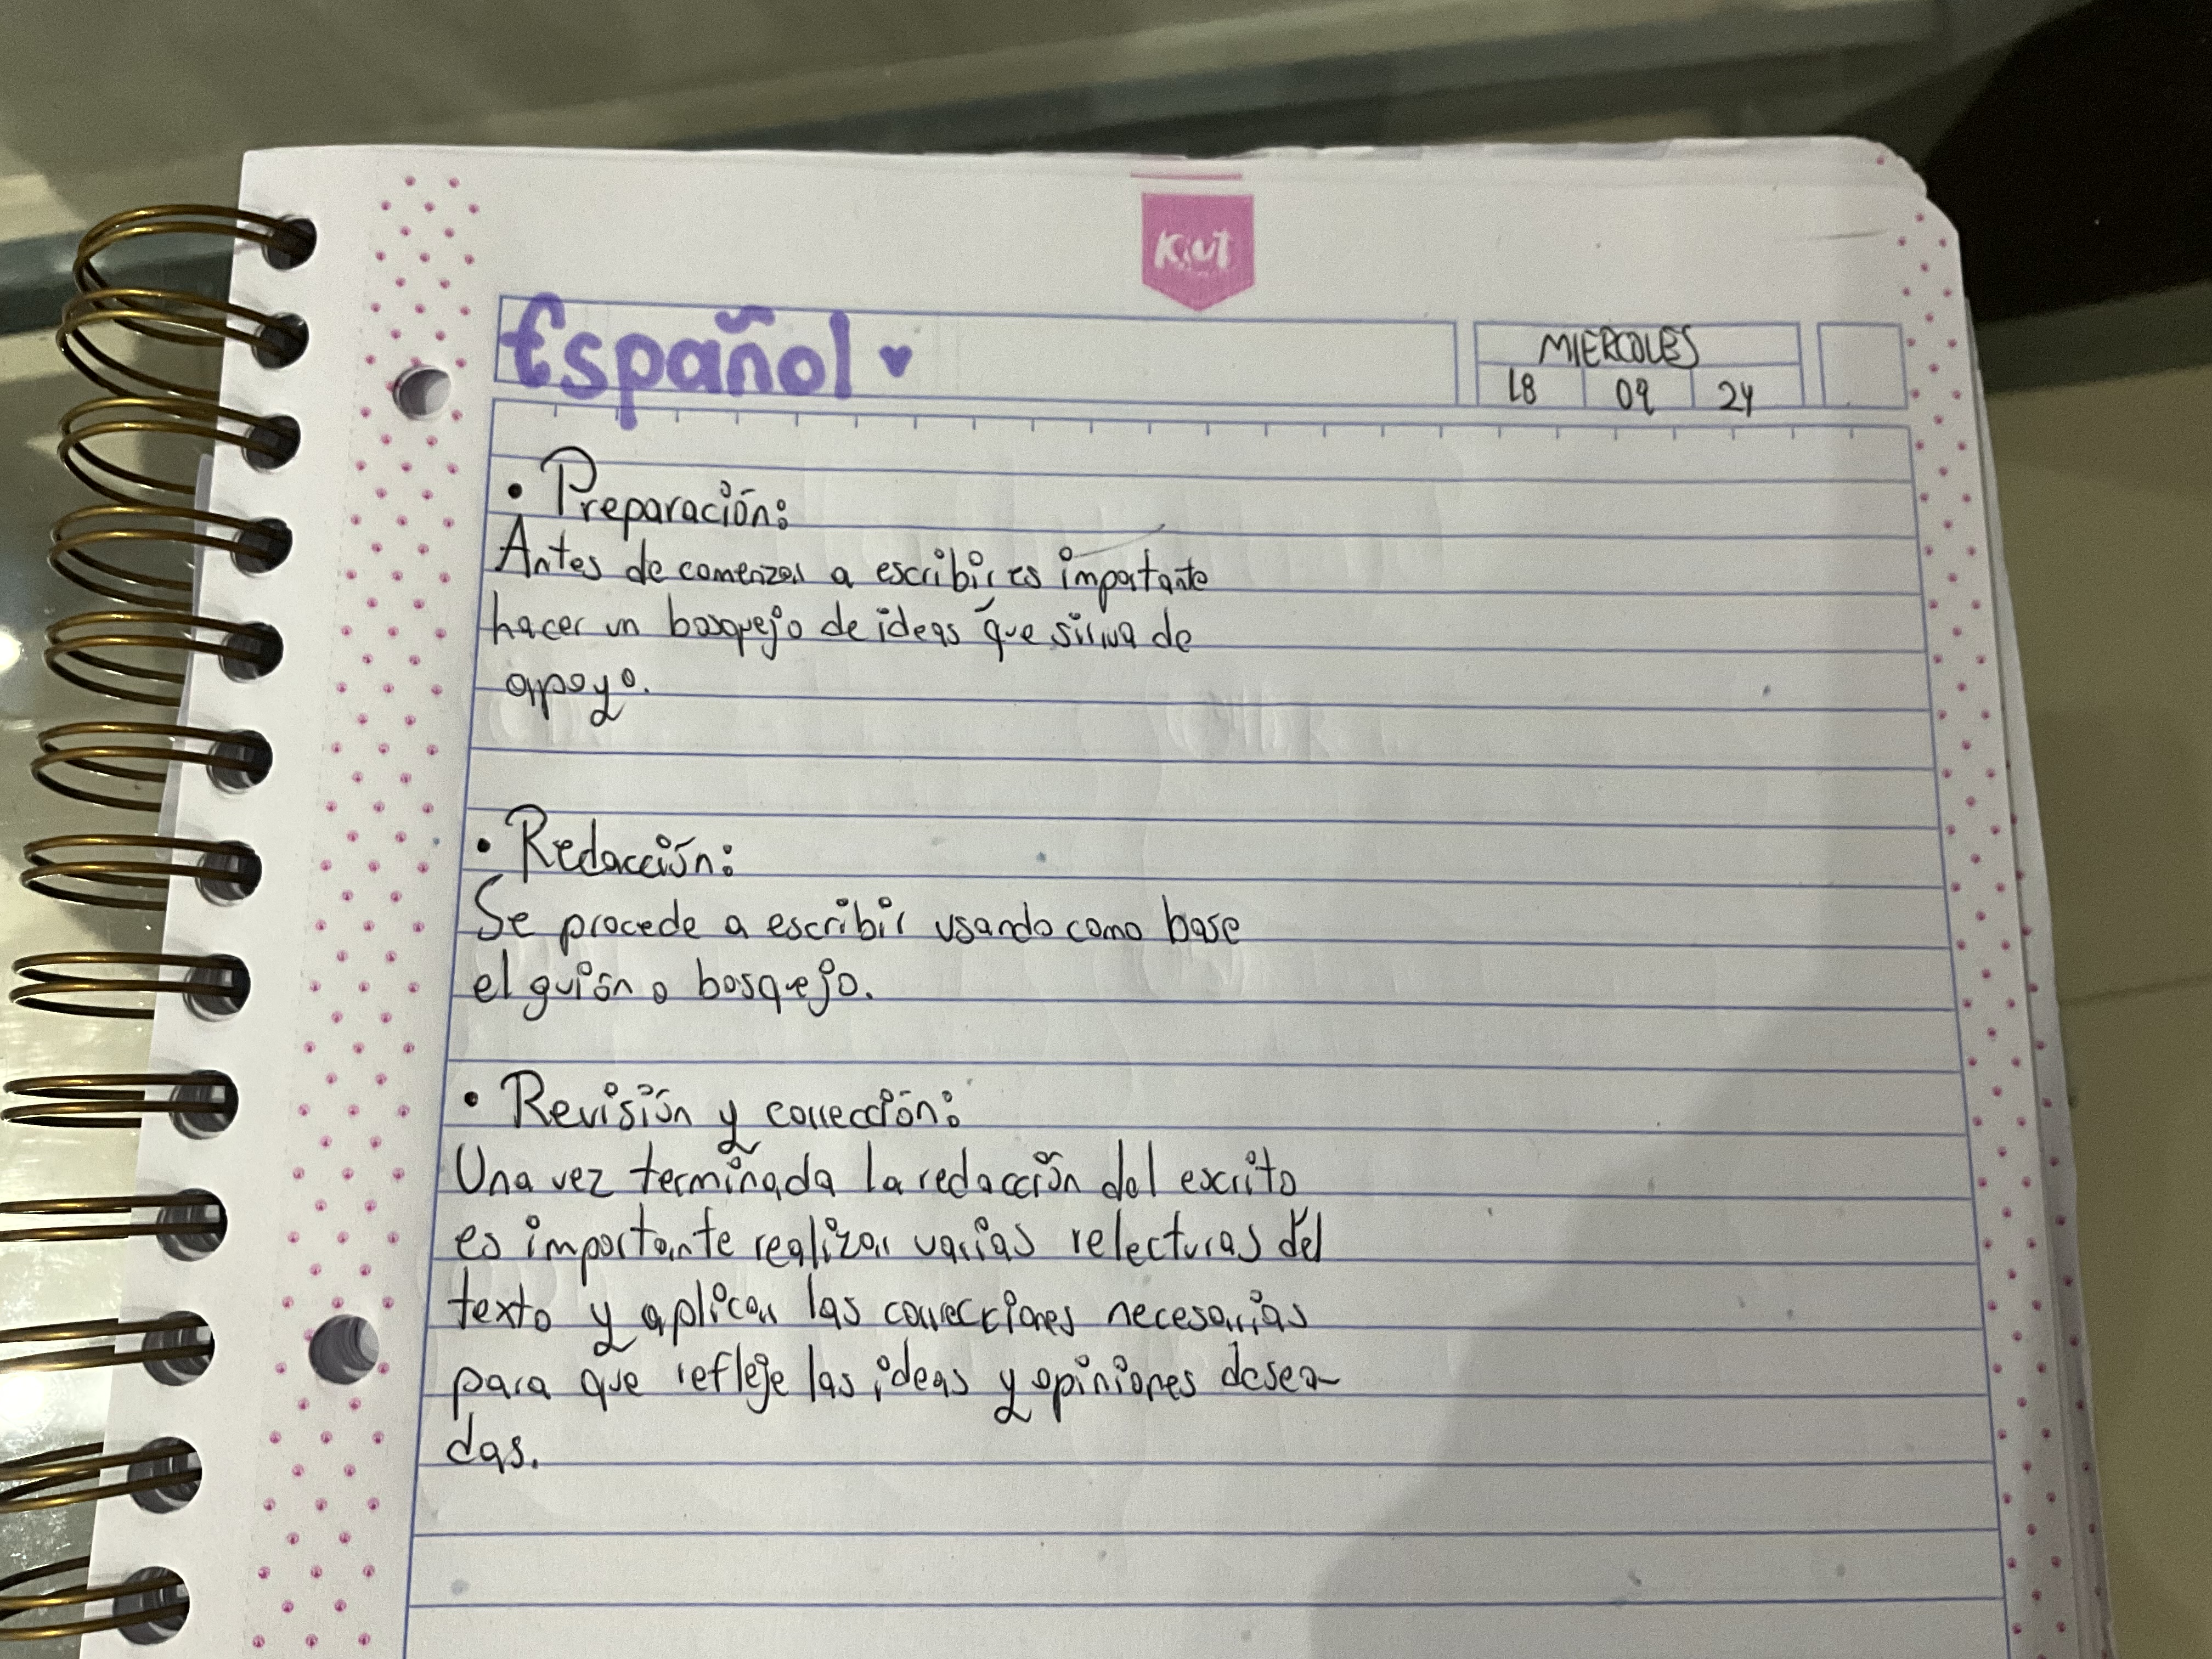 Kiut
Español ♥
MIERCOLES
18 09 24
• Preparación:
Antes de comenzar a escribir es importante
hacer un bosquejo de ideas que sirva de
apoyo.
• Redacción:
Se procede a escribir usando como base
el guión o bosquejo.
• Revisión y corrección:
Una vez terminada la redacción del escrito
es importante realizar varias relecturas del
texto y aplicar las correcciones necesarias
para que refleje las ideas y opiniones desea-
das.